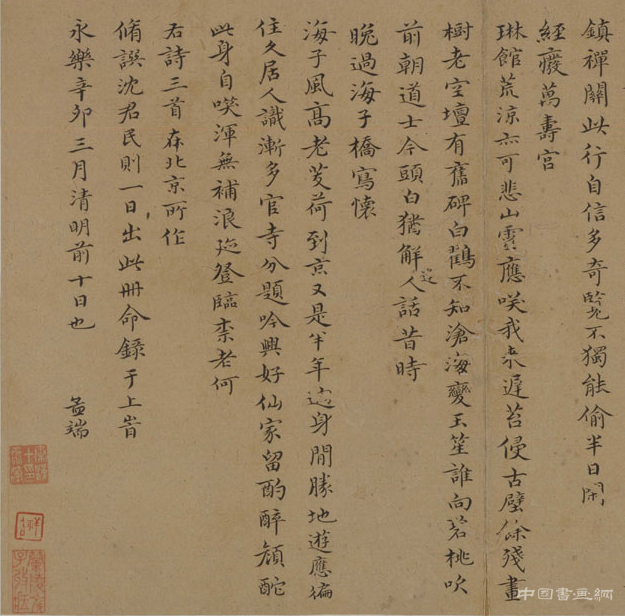 鎮禪關此行自信多奇覽不獨能偷半日閑
經癈萬壽宮
琳館荒涼亦可悲山靈應咲我來遲苔侵古壁餘殘畫
樹老空壇有舊碑白鶴不知滄海變玉笙誰向碧桃吹
前朝道士今頭白猶解人話昔時
逆
晚過海子橋寫懷
海子風髙老芰荷到京又是半年過身閒勝地遊應徧
住久居人識漸多官寺分題吟興好仙家留酌醉顔酡
此身自咲渾無補浪跡登臨柰老何
右詩三首在北京所作
脩譔沈君民則一日出此冊命錄于上旹
永樂辛卯三月清明前十日也
孟端
中国書画網